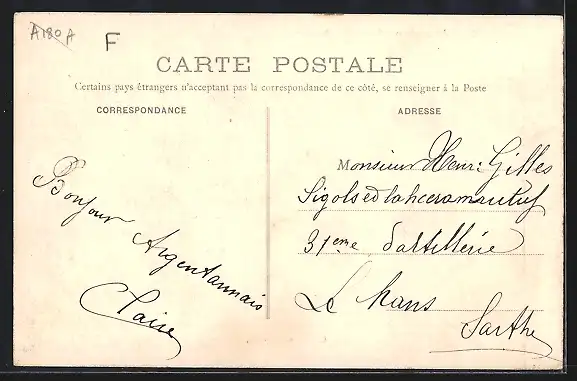 A180A
F
CARTE POSTALE
Certains pays étrangers n'acceptant pas la correspondance de ce côté, se renseigner à la Poste
CORRESPONDANCE
ADRESSE
Bonjour Argentannais
Claire
Monsieur Henri Gilles
31eme Dartillerie
Le Mans
Sarthe